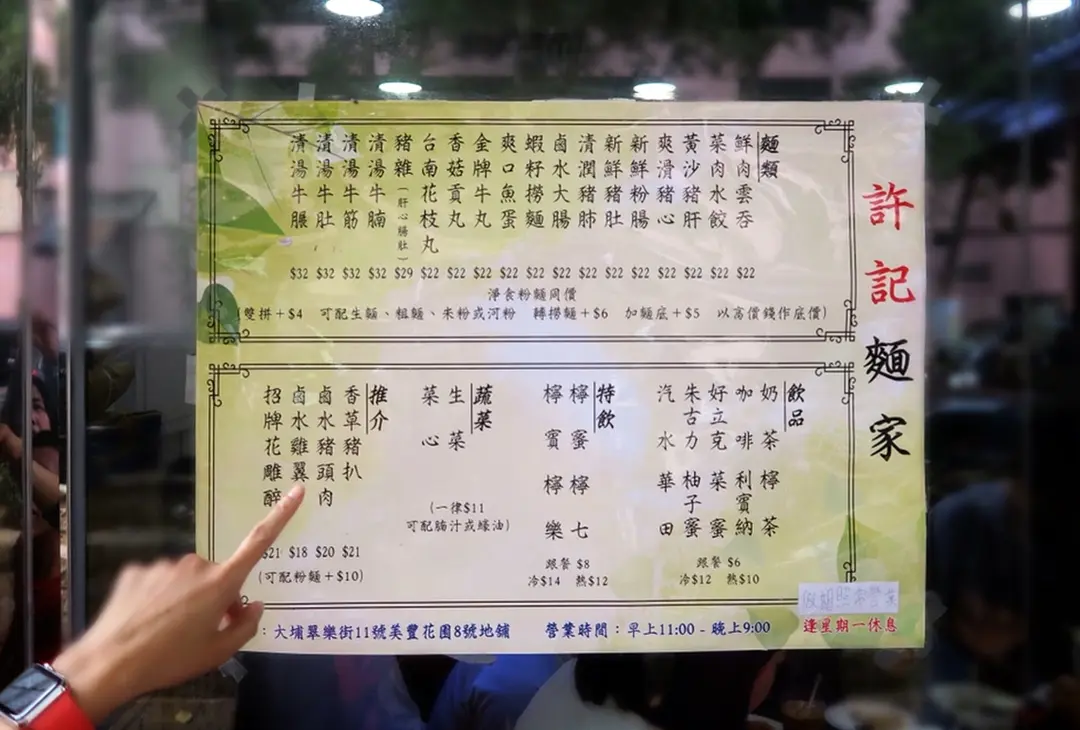 許記麵家
麵類
鮮肉雲吞 $22
菜肉水餃 $22
黃沙豬肝 $22
爽滑豬心 $22
新鮮粉腸 $22
新鮮豬肚 $22
清潤豬肺 $22
鹵水大腸 $22
蝦籽撈麵 $22
爽口魚蛋 $22
金牌牛丸 $22
香菇貢丸 $22
台南花枝丸 $22
豬雜(肝心腸肚) $29
清湯牛腩 $32
清湯牛筋 $32
清湯牛肚 $32
清湯牛𦟌 $32
淨食粉麵同價
(雙拼+$4 可配生麵、粗麵、米粉或河粉 轉撈麵+$6 加麵底+$5 以高價錢作底價)
飲品
奶茶 檸茶
咖啡 利賓納
好立克 菜蜜
朱古力 柚子蜜
汽水 華田
跟餐 $6
冷$12 熱$10
特飲
檸蜜 檸七
檸賓 檸樂
跟餐 $8
冷$14 熱$12
蔬菜
生菜
菜心
(一律$11
可配腩汁或蠔油)
推介
香草豬扒 $21
鹵水豬頭肉 $20
鹵水雞翼 $18
招牌花雕醉 $21
(可配粉麵+$10)
: 大埔翠樂街11號美豐花園8號地鋪 營業時間:早上11:00 - 晚上9:00
假期照常營業
逢星期一休息